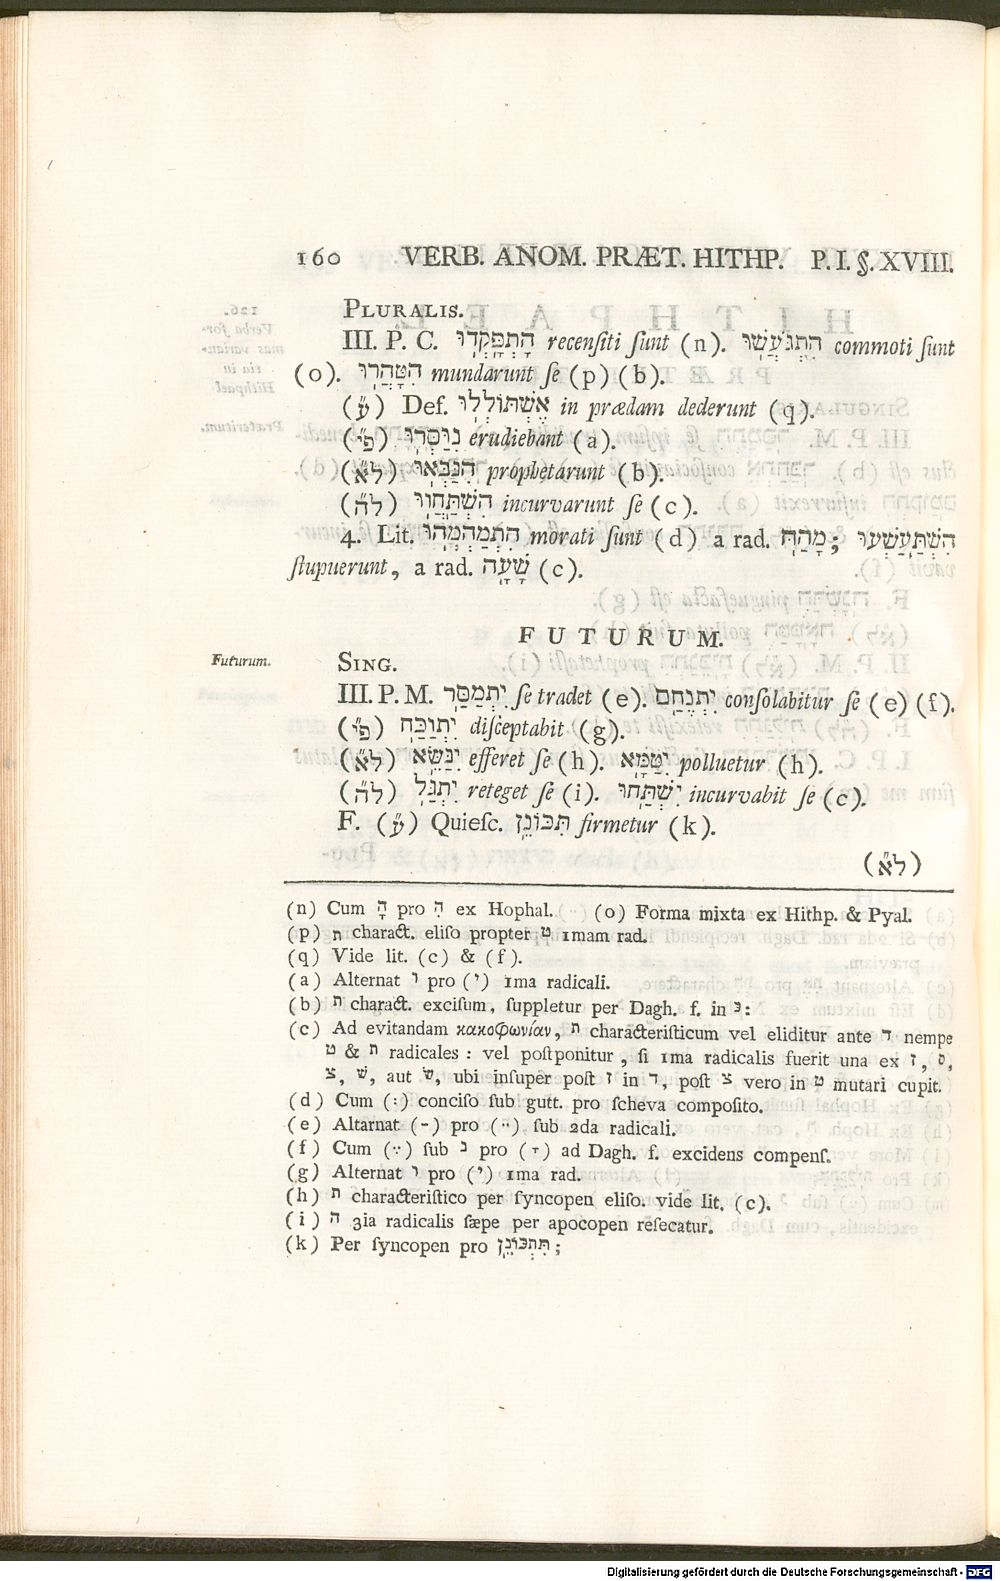 160 VERB. ANOM. PRÆT. HITHP. P. I. §. XVIII.
PLURALIS.
III. P. C. הָתְפָּקְדוּ recenſiti ſunt (n). הִתְגֹּעֲשׁוּ commoti ſunt
(o). הִטָּהֲרוּ mundarunt ſe (p) (b).
(ע״ע) Def. אֶשְׁתּוֹלְלוּ in prædam dederunt (q).
(פ״י) נִוַּסְּרוּ erudiebant (a).
(ל״א) הִנַּבְּאוּ prophetarunt (b).
(ל״ה) הִשְׁתַּחֲווּ incurvarunt ſe (c).
4. Lit. הִתְמַהְמְהוּ morati ſunt (d) a rad. מָהַהּ; הִשְׁתַּעַשְׁעוּ
ſtupuerunt, a rad. שָׁעָה (c).
FUTURUM.
Futurum.
SING.
III. P. M. יִתְמַסַּר ſe tradet (e). יִתְנֶחַם conſolabitur ſe (e) (f).
(פ״י) יִתְוַכַּח diſceptabit (g).
(ל״א) יִנַּשֵּׂא efferet ſe (h). יִטַּמָּא polluetur (h).
(ל״ה) יִתְגַּל reteget ſe (i). יִשְׁתַּחוּ incurvabit ſe (c).
F. (ע״ו) Quieſc. תִּכּוֹנֵן firmetur (k).
(ל״א)
(n) Cum הָ pro הֻ ex Hophal. (o) Forma mixta ex Hithp. & Pyal.
(p) ת charact. eliſo propter ט 1mam rad.
(q) Vide lit. (c) & (f).
(a) Alternat ו pro (י) 1ma radicali.
(b) ת charact. exciſum, ſuppletur per Dagh. f. in נּ:
(c) Ad evitandam κακοφωνίαν, ת characteriſticum vel eliditur ante ד nempe
ט & ת radicales: vel poſtponitur, ſi 1ma radicalis fuerit una ex ז, ס,
צ, שׁ, aut שׂ, ubi inſuper poſt ז in ד, poſt צ vero in ט mutari cupit.
(d) Cum (:) conciſo ſub gutt. pro ſcheva compoſito.
(e) Altarnat (-) pro (··) ſub 2da radicali.
(f) Cum (∵) ſub נ pro (ָ) ad Dagh. f. excidens compenſ.
(g) Alternat ו pro (י) 1ma rad.
(h) ת characteriſtico per ſyncopen eliſo. vide lit. (c).
(i) ה 3ia radicalis ſæpe per apocopen reſecatur.
(k) Per ſyncopen pro תִּתְכּוֹנֵן;
Digitalisierung gefördert durch die Deutsche Forschungsgemeinschaft - DFG